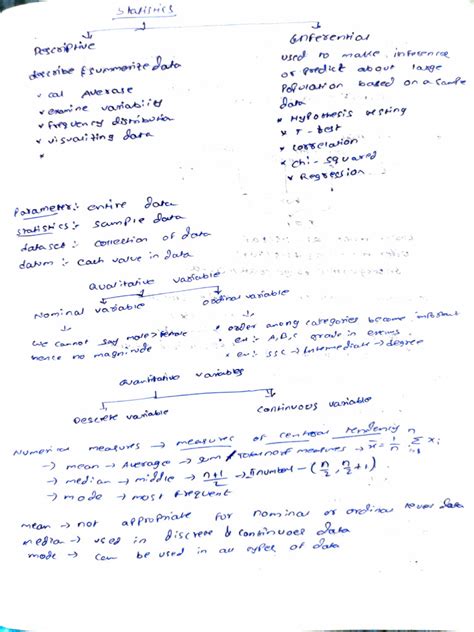 Statistics
Descriptive
describe & summerize data
* cal Average
* examine variability
* frequency distributia
* visualiting data
*
Inferential
used to make inference
or predict about large
population based on a sample
data
* Hypothesis testing
* T-test
* correlation
* chi-squared
* Regression
Parameter:- entire data
statistics:- sample data
dataset:- collection of data
datum:- each value in data
Qualitative variable
Nominal variable
ordinal variable
We cannot say male > female
hence no magnitude
* order among categories become important
* ex: A,B,C grade in exems
* ex: SSC → Intermediate → degree
Quantitative variables
Descrete variable
Continuous variable
Numerical measures → measures of central tendency
→ mean → Average → sum / Total no of measures → x̄ = 1/n Σ xi
→ median → middle → n+1/2 → (n/2, n/2+1)
→ mode → most frequent
mean → not appropriate for nominal or ordinal level data
media → used in discrete & continuoes data
mode → can be used in all types of data